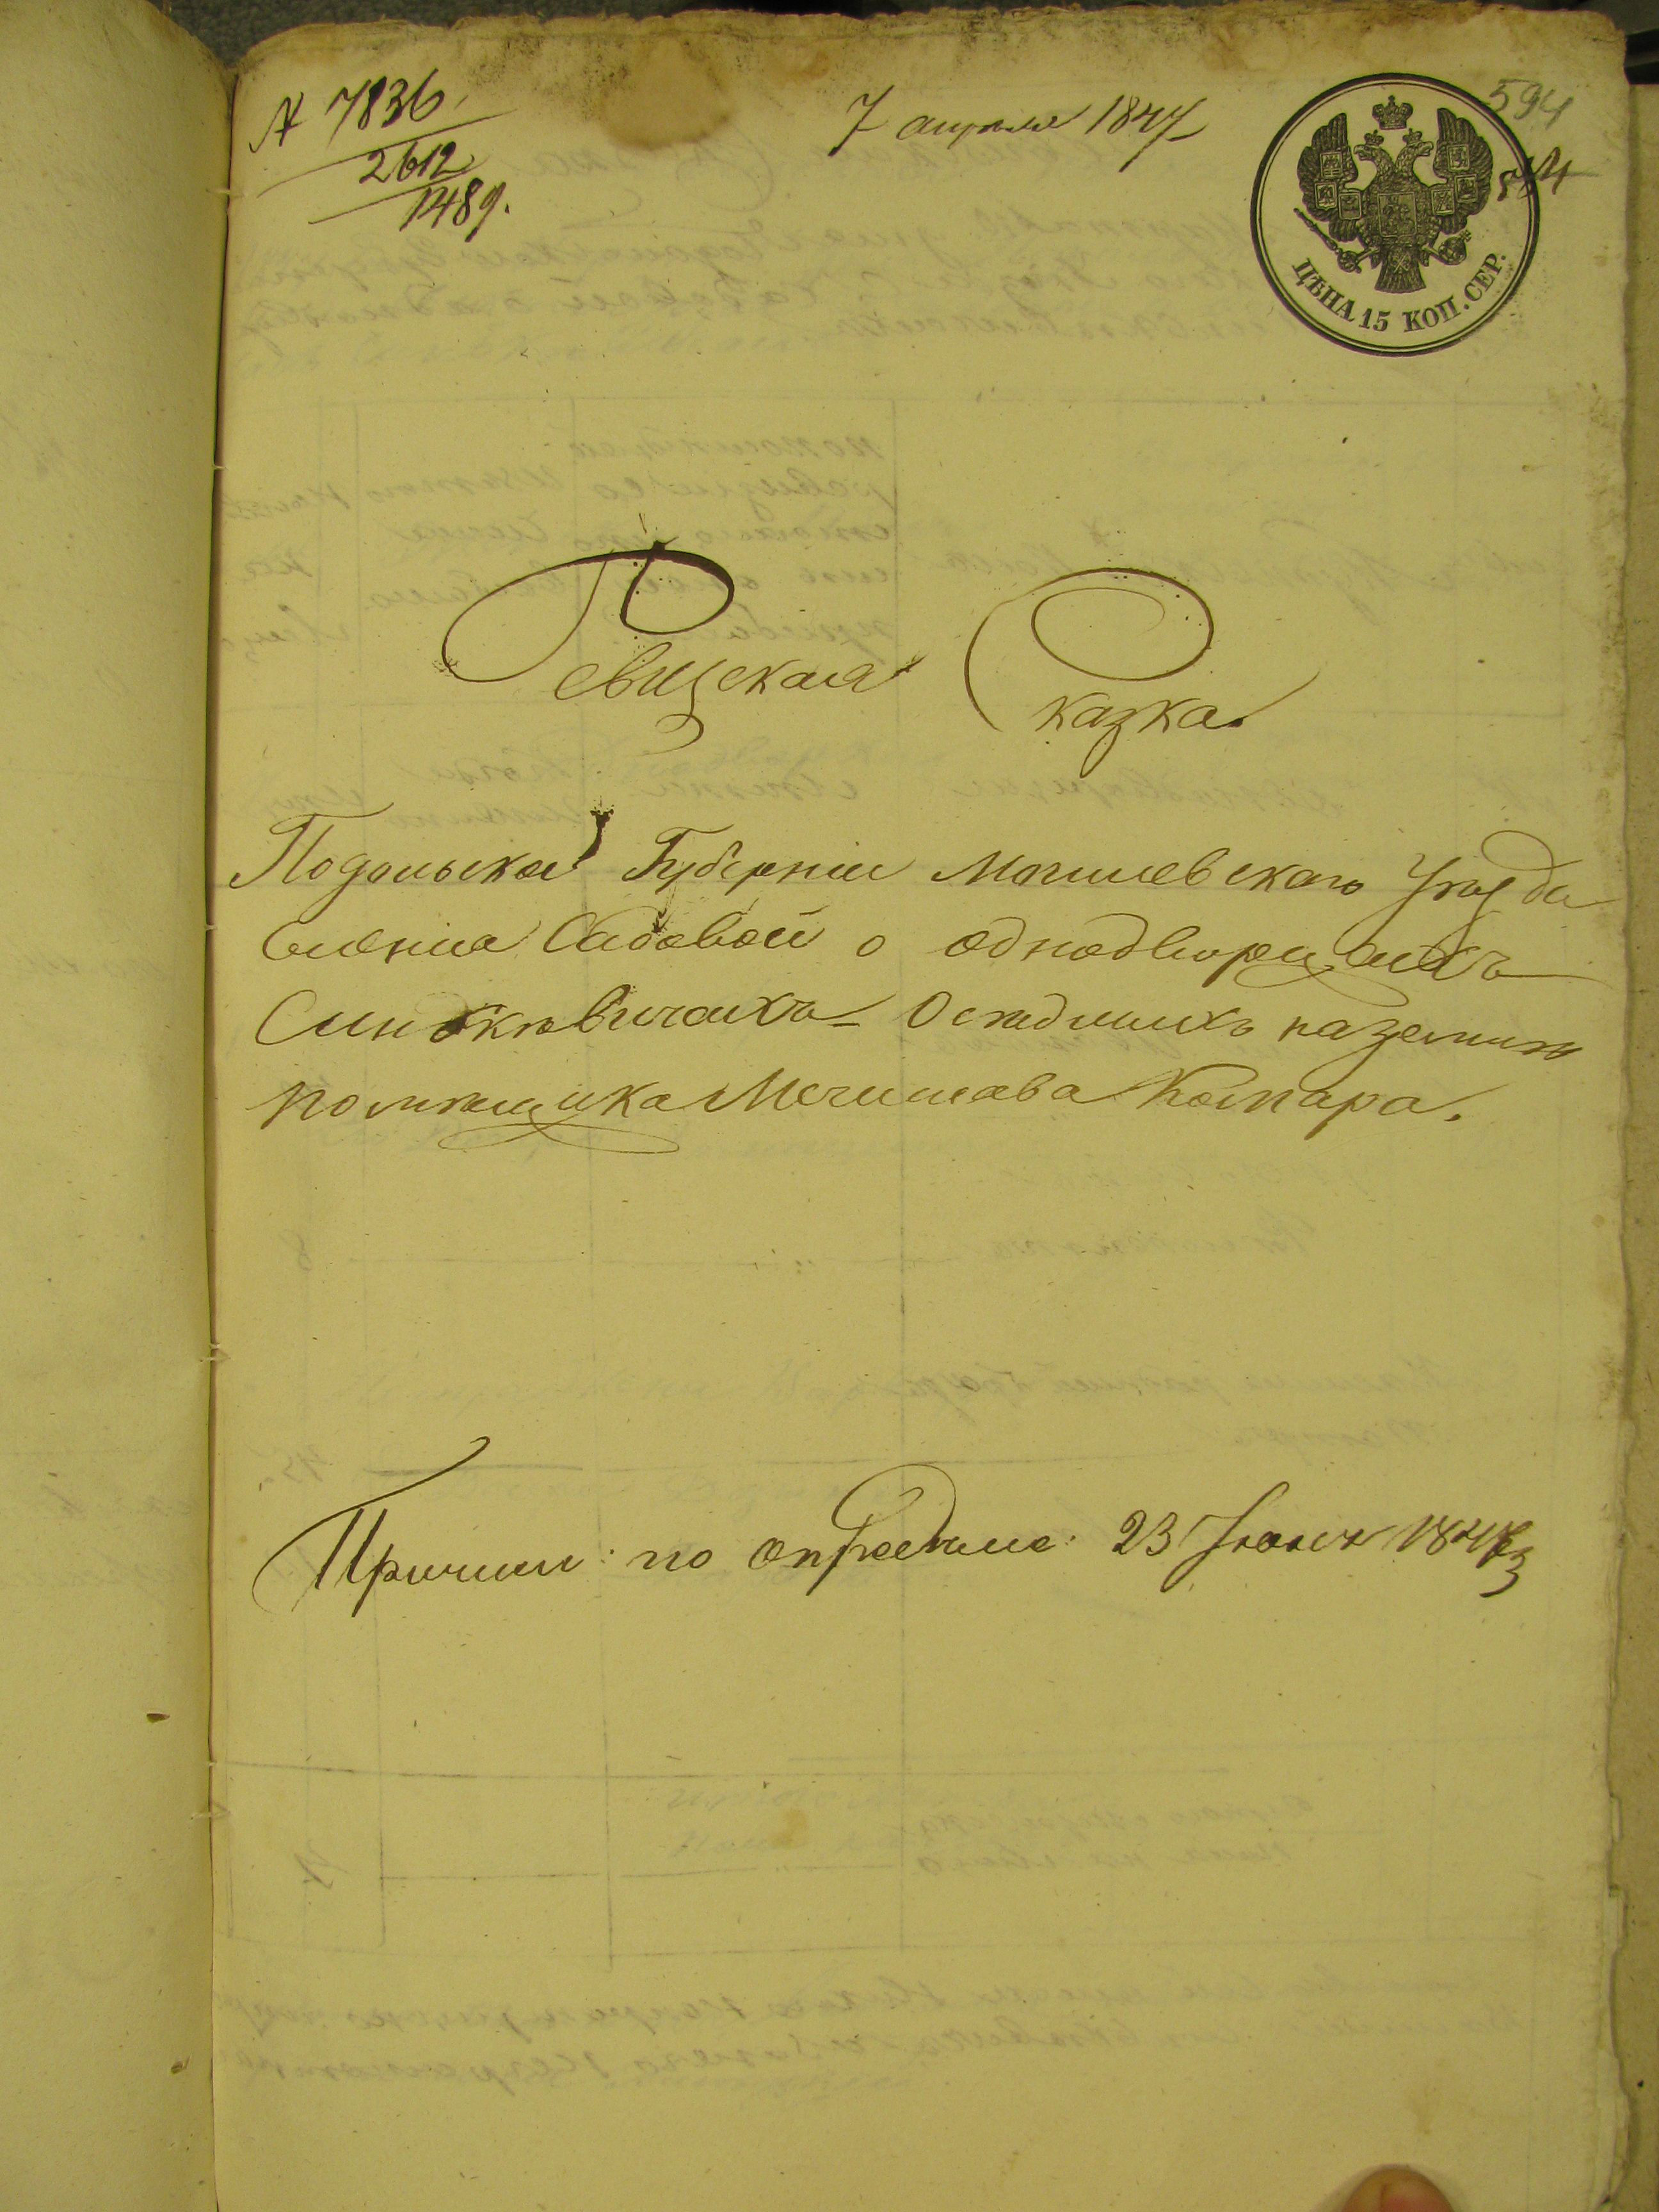 № 7836
2612
1489.
7 апреля 1847
594
ЦѢНА 15 КОП. СЕР.
Ревизская Сказка
Подольской Губерніи Могилевскаго Уѣзда
Селенія Садовой о однодворцахъ
Осѣдлихъ на землѣ
помѣщика Мечислава Комара.
Причисл: по опредѣле: 23 Іюня 1843